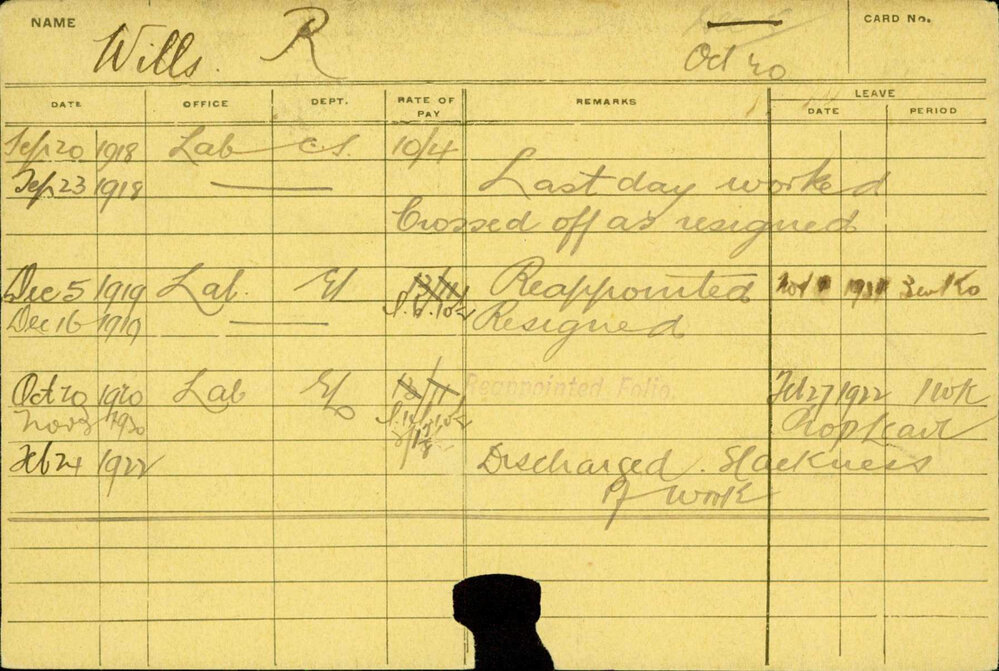 NAME Wills. R Oct 20 CARD No.
DATE OFFICE DEPT. RATE OF PAY REMARKS LEAVE DATE PERIOD
Sep 20 1918 Lab C.S. 10/4
Sep 23 1918 Last day worked
Crossed off as resigned
Dec 5 1919 Lab. El 12/11 Reappointed
Dec 16 1919 Resigned
Oct 20 1920 Lab El Reappointed Folio Feb 27 1922 1 WK
Nov 3 1920 Prop Leave
Feb 24 1922 Discharged. Slackness
of work